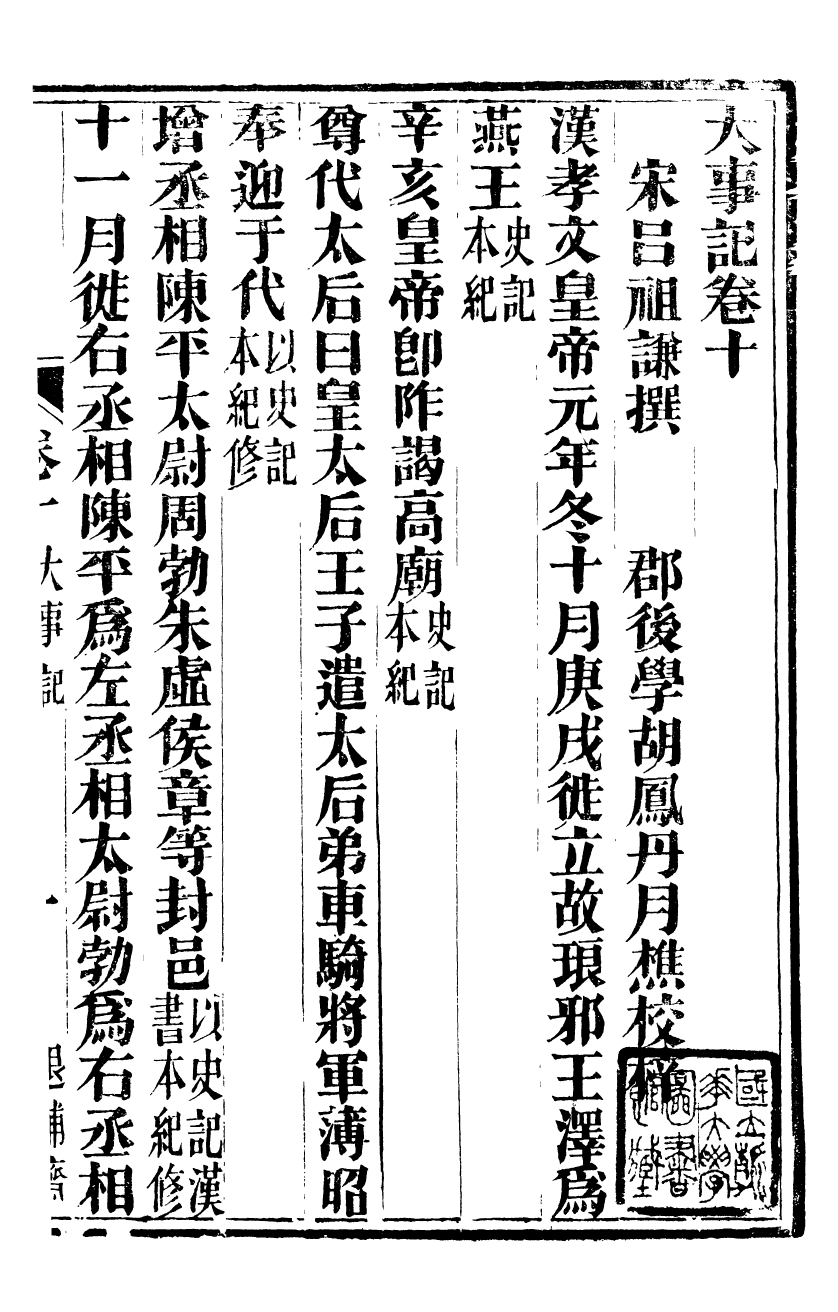 大事記卷十
宋呂祖謙撰　郡後學胡鳳丹月樵校梓
漢孝文皇帝元年冬十月庚戌徙立故琅邪王澤爲
燕王史記本紀
辛亥皇帝卽阼謁高廟史記本紀
尊代太后曰皇太后王子遣太后弟車騎將軍薄昭
奉迎于代以史記本紀修
增丞相陳平太尉周勃朱虛侯章等封邑以史記漢書本紀修
十一月徙右丞相陳平爲左丞相太尉勃爲右丞相
卷十 大事記
退補齋